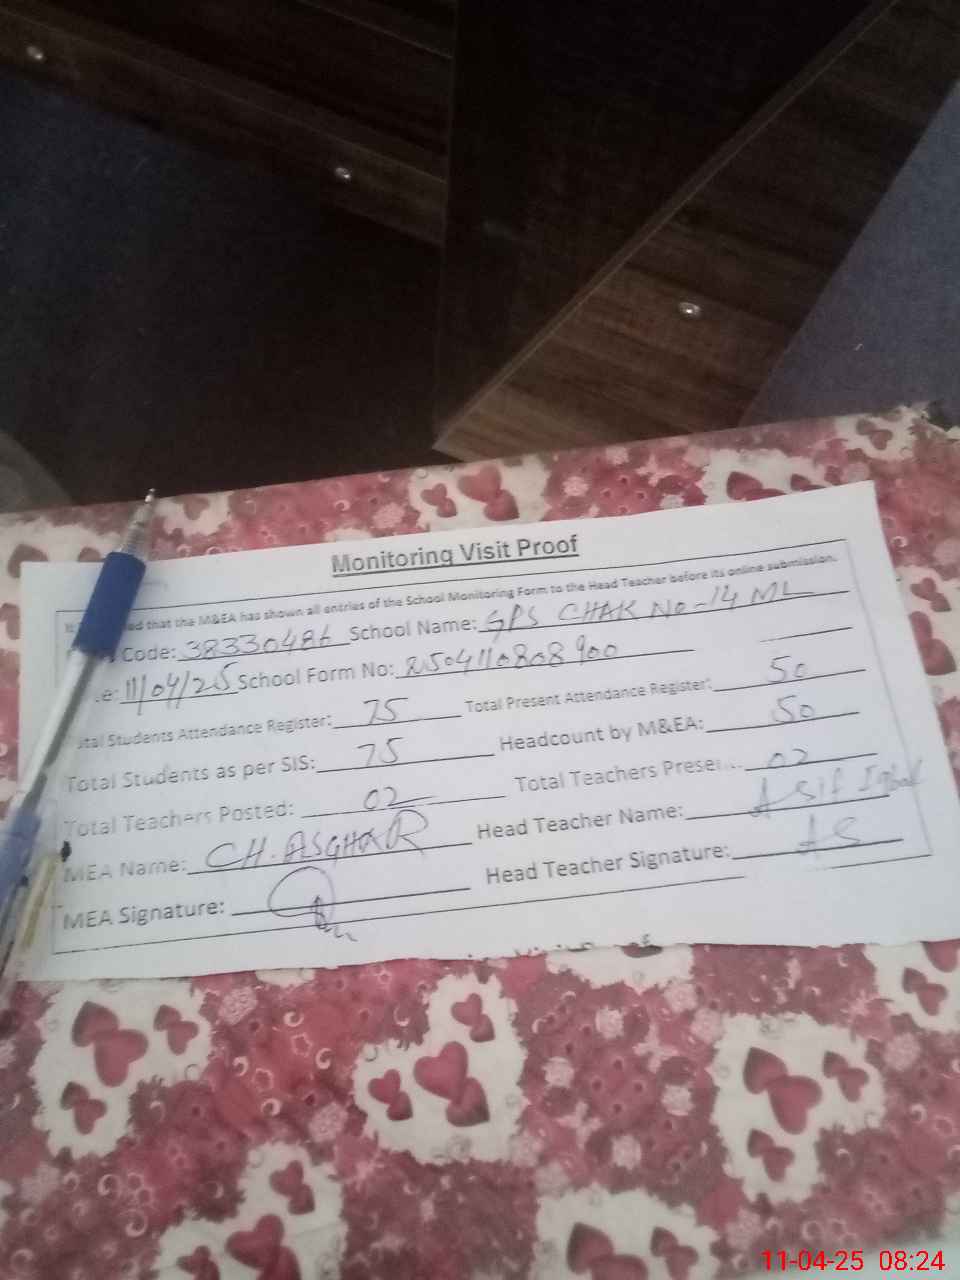 Monitoring Visit Proof
ed that the M&EA has shown all entries of the School Monitoring Form to the Head Teacher before its online submission.
Code: 38330486 School Name: GPS CHAK No-14 ML
e: 11/04/25 School Form No: 2504110808900
tal Students Attendance Register: 75 Total Present Attendance Register: 50
Total Students as per SIS: 75 Headcount by M&EA: 50
Total Teachers Posted: 02 Total Teachers Presen... 02
MEA Name: CH. ASGHAR Head Teacher Name: Asif Iqbal
MEA Signature: Head Teacher Signature: AS
11-04-25 08:24